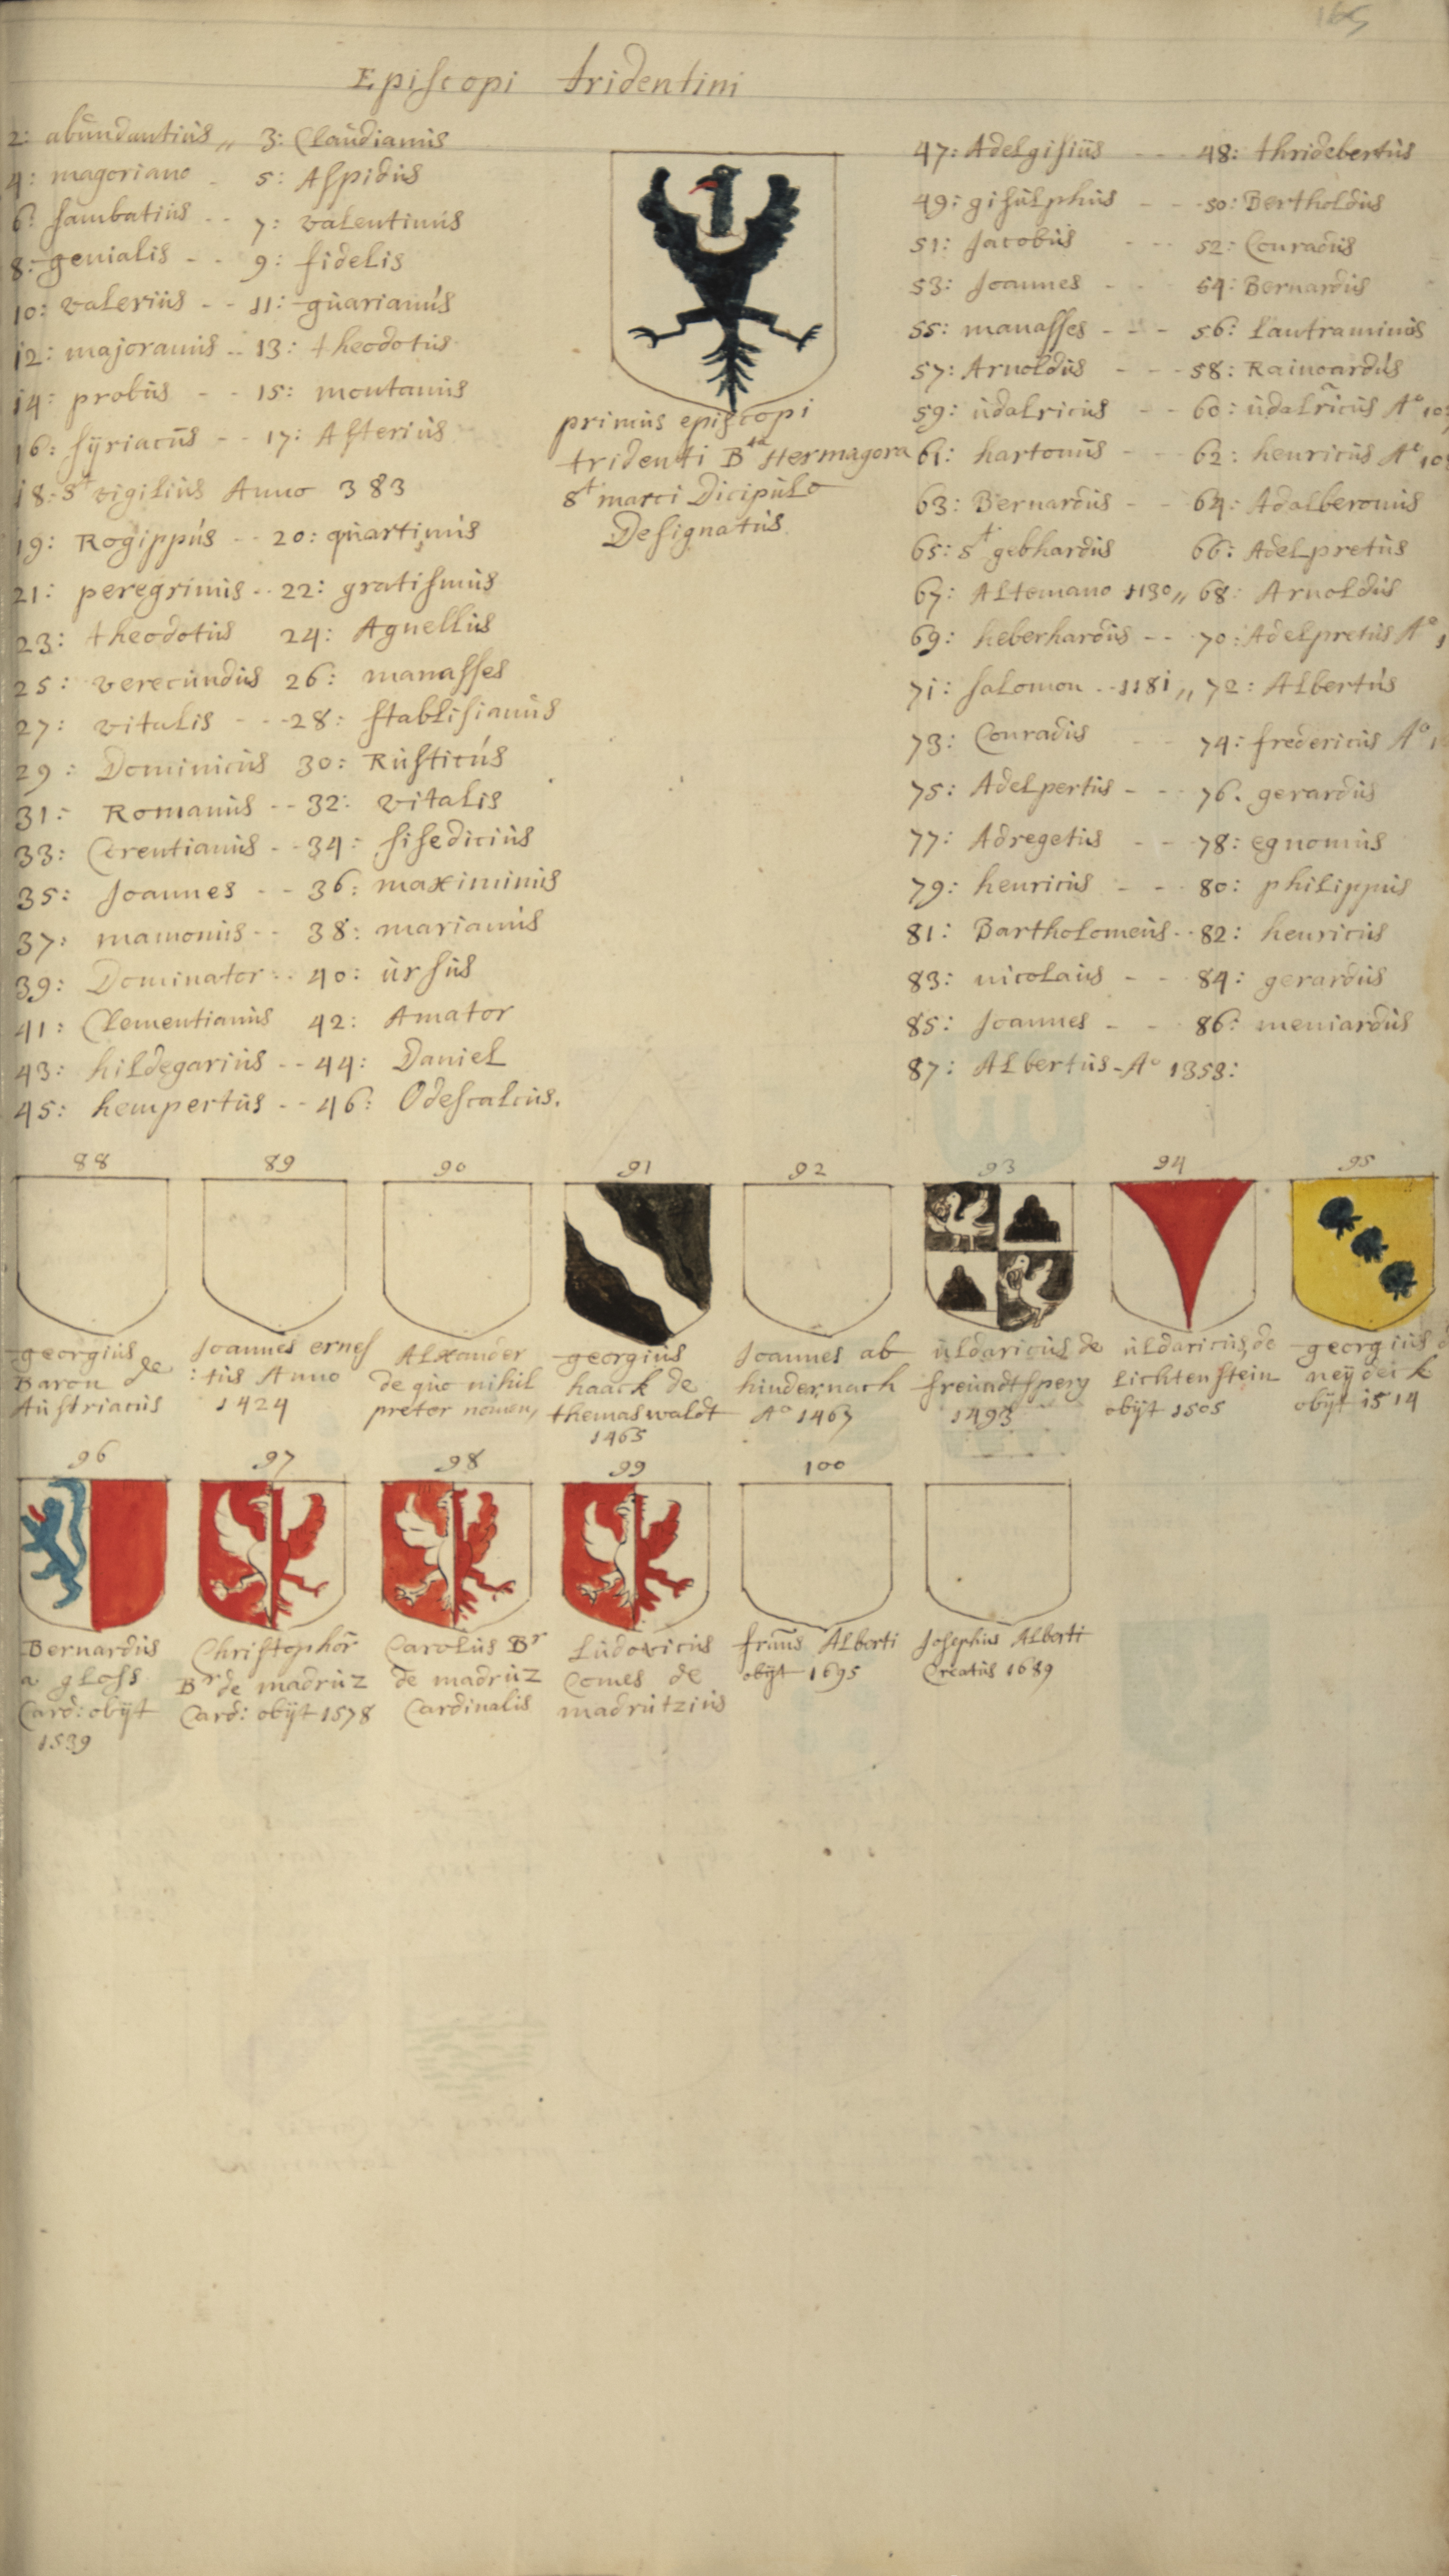 165
Episcopi tridentini
2: abundantius,, 3: Claudianus
4: magoriano - 5: Aspidus
6: sambatius - - 7: valentinus
8: genialis - - 9: fidelis
10: valerius - - 11: guarianus
12: majoranus - - 13: theodotus
14: probus - - 15: montanus
16: syriacus - - 17: Asterius
18: St vigilius Anno 383
19: Rogippus - - 20: quartinus
21: peregrinus - - 22: gratismus
23: theodotus 24: Agnellus
25: verecundus 26: manasses
27: vitalis - - - 28: stablisianus
29: Dominicus 30: Rusticus
31: Romanus - - 32: vitalis
33: Cerentianus - - 34: sisedicius
35: Joannes - - 36: maximinus
37: mamonus - - 38: marianus
39: Dominator - - 40: ursus
41: Clementianus 42: Amator
43: hildegarius - - 44: Daniel
45: hempertus - - 46: Odescalcus.
primus episcopi
tridenti Bta Hermagora
St marci Dicipulo
Designatus
47: Adelgisius - - - 48: thridebertus
49: gisulphus - - - 50: Bertholdus
51: Jacobus - - - 52: Conradus
53: Joannes - - 54: Bernardus
55: manasses - - - 56: Lautraminus
57: Arnoldus - - - 58: Rainoardus
59: udalricus - - 60: udalricus Ao
61: hartonus - - 62: henricus Ao
63: Bernardus - - 64: Adalberonus
65: St gebhardus 66: Adelpretus
67: Altemano 1130,, 68: Arnoldus
69: heberhardus - - 70: Adelpretus Ao
71: salomon - - 1181,, 72: Albertus
73: Conradus - - 74: fredericus Ao
75: Adelpertus - - - 76. gerardus
77: Adregetus - - 78: egnonus
79: henricus - - 80: philippus
81: Bartholomeus - - 82: henricus
83: nicolaus - - 84: gerardus
85: Joannes - - 86: meniardus
87: Albertus - Ao 1353:
88 89 90 91 92 93 94 95
georgius
Baron de
Austriacus
Joannes ernes
:tus Anno
1424
Alxander
de quo nihil
preter nomen,
georgius
haack de
themaswaldt
1465
Joannes ab
hindernach
Ao 1467
uldaricus de
freundtsperg
1493
uldaricus de
Lichtenstein
obijt 1505
georgius d
neydeik
obijt 1514
96 97 98 99 100
Bernardus
a gloss
Card: obijt
1539
Christophor
Br de madruz
Card: obijt 1578
Carolus Br
de madruz
Cardinalis
Ludovicus
Comes de
madrutzius
fruns Alberti
obijt 1695
Josephus Alberti
Creatus 1689